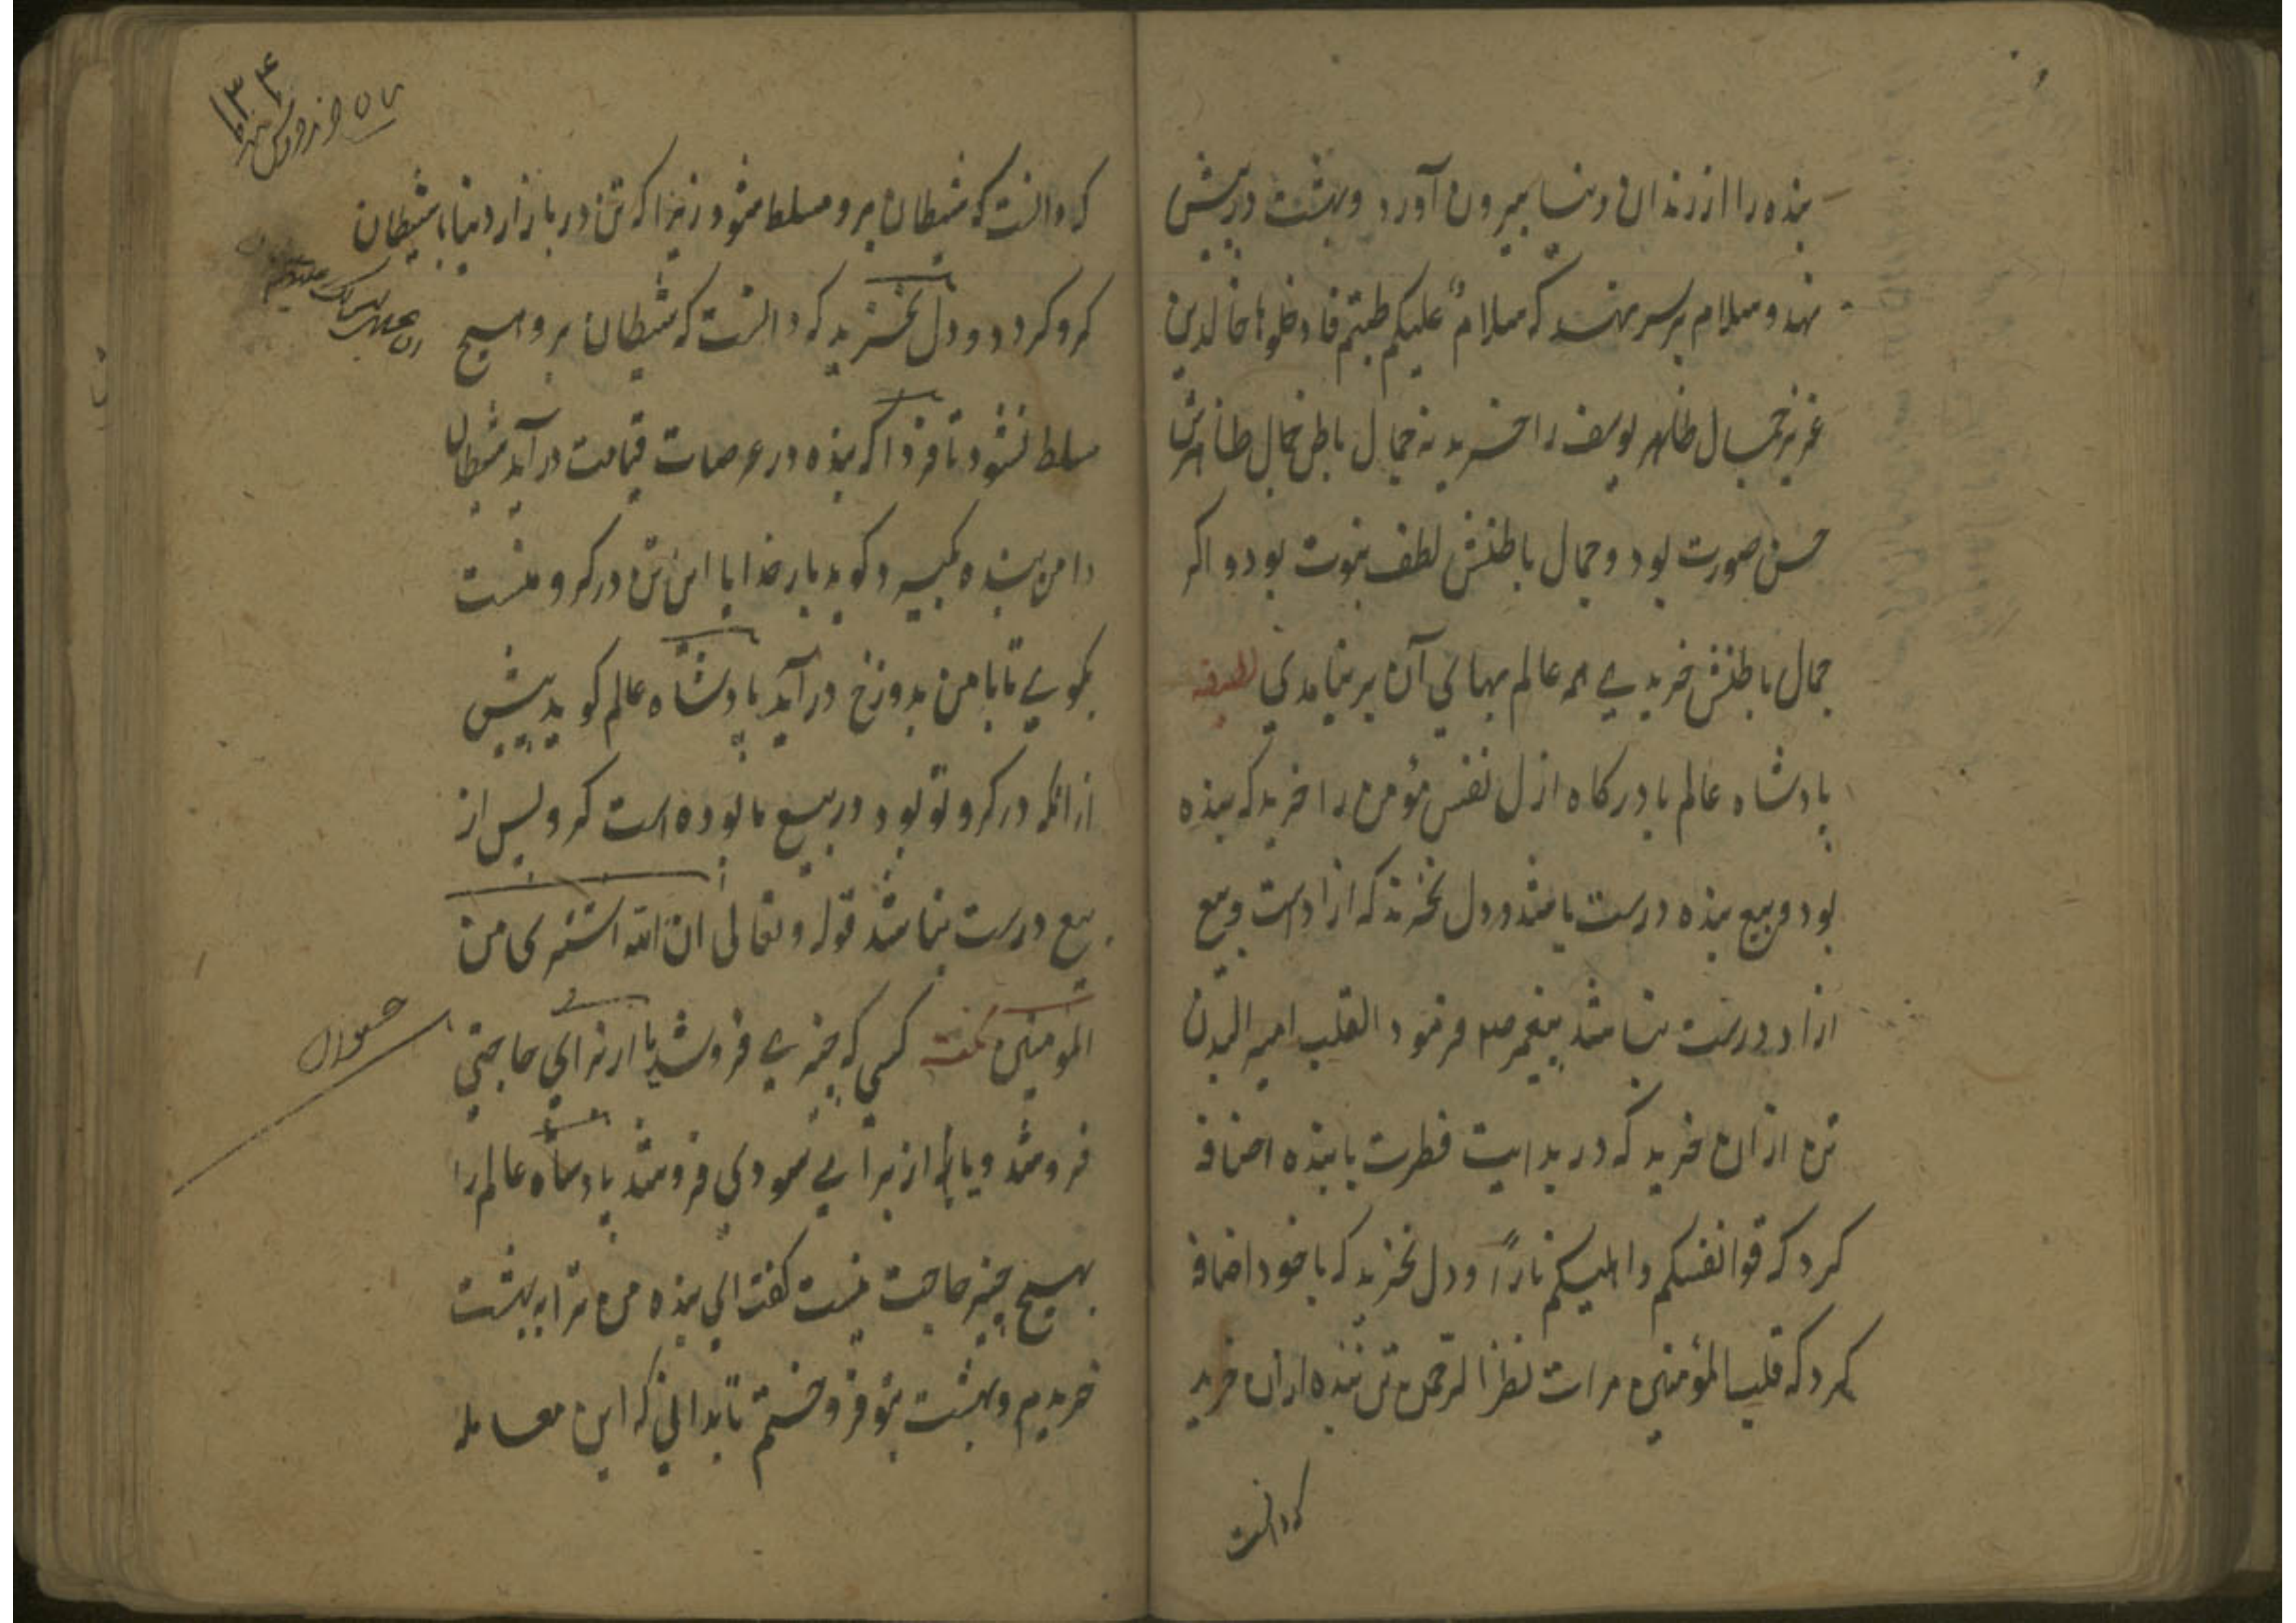 بنده را از زندان دنیا بیرون آورد و بهشت در پیش
نهد و سلام بر سر نهد که سلامٌ علیکم طبتم فادخلوها خالدین
عزیز جمال ظاهر یوسف را خرید نه جمال باطن جمال ظاهرش
حسن صورت بود و جمال باطنش لطف نبوت بود و اکر
جمال باطنش خریدی همه عالم بهای آن برنیامدی لطیفه
پادشاه عالم با درکاه ازل نفس مؤمن را خرید که بنده
بود و بیع بنده درست باشد و دل نخرید که ازاد است و بیع
ازاد درست نباشد پیغمبر صلم فرمود القلب امیر البدن
تن از ان خرید که در بدایت فطرت با بنده اضافه
کرد که قوا انفسکم و اهلیکم ناراً و دل نخرید که با خود اضافه
کرد که قلب المؤمنین مرات نظر الرحمن تن بنده از ان خرید
که دانست
که دانست که شیطان برو مسلط شود زیرا که تن در بازار دنیا با شیطان
کرو کردد و دل نخرید که دانست که شیطان برو هیچ
مسلط نشود تا فردا که بنده در عرصات قیامت در آید شیطان
دامن بنده بکیرد و کوید بار خدایا این تن در کرو منست
بکوی تا با من بدوزخ در آید پادشاه عالم کوید پیش
از انکه در کرو تو بود در بیع ما بوده است کرو پس از
بیع درست نباشد قوله و تعالی ان الله اشتری من
المومنین نکته کسی که چیزی فروشد یا از برای حاجتی
فروشد و یا از برای سودی فروشد پادشاه عالم را
بهیچ چیز حاجت نیست کفت ای بنده من ترا به بهشت
خریدم و بهشت بتو فروختم تا بدانی که این معامله